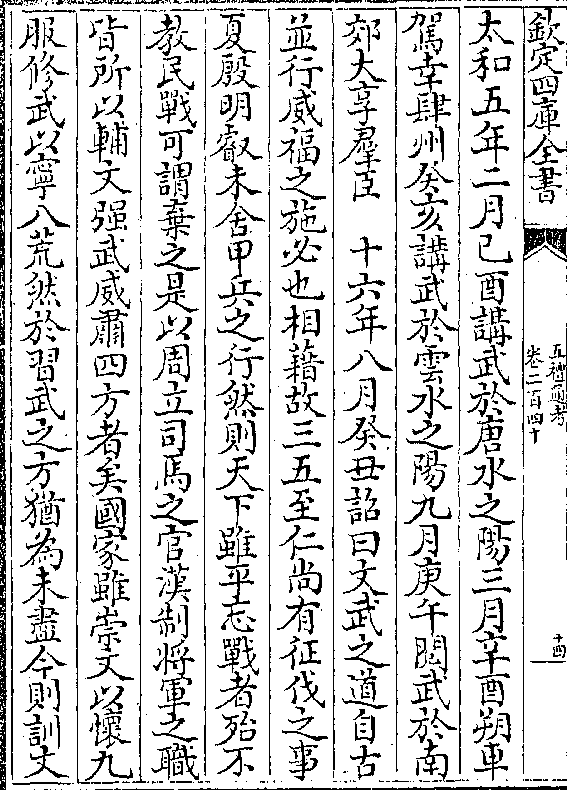 欽定四庫全書
五禮通考
卷二百四十
十四
太和五年二月己酉講武於唐水之陽三月辛酉朔車
駕幸肆州癸亥講武於雲水之陽九月庚午閱武於南
郊大享羣臣　十六年八月癸丑詔曰文武之道自古
並行威福之施必也相藉故三五至仁尚有征伐之事
夏殷明叡未舍甲兵之行然則天下雖平忘戰者殆不
教民戰可謂棄之是以周立司馬之官漢制將軍之職
皆所以輔文强武威肅四方者矣國家雖崇文以懷九
服修武以寧八荒然於習武之方猶為未盡今則訓文